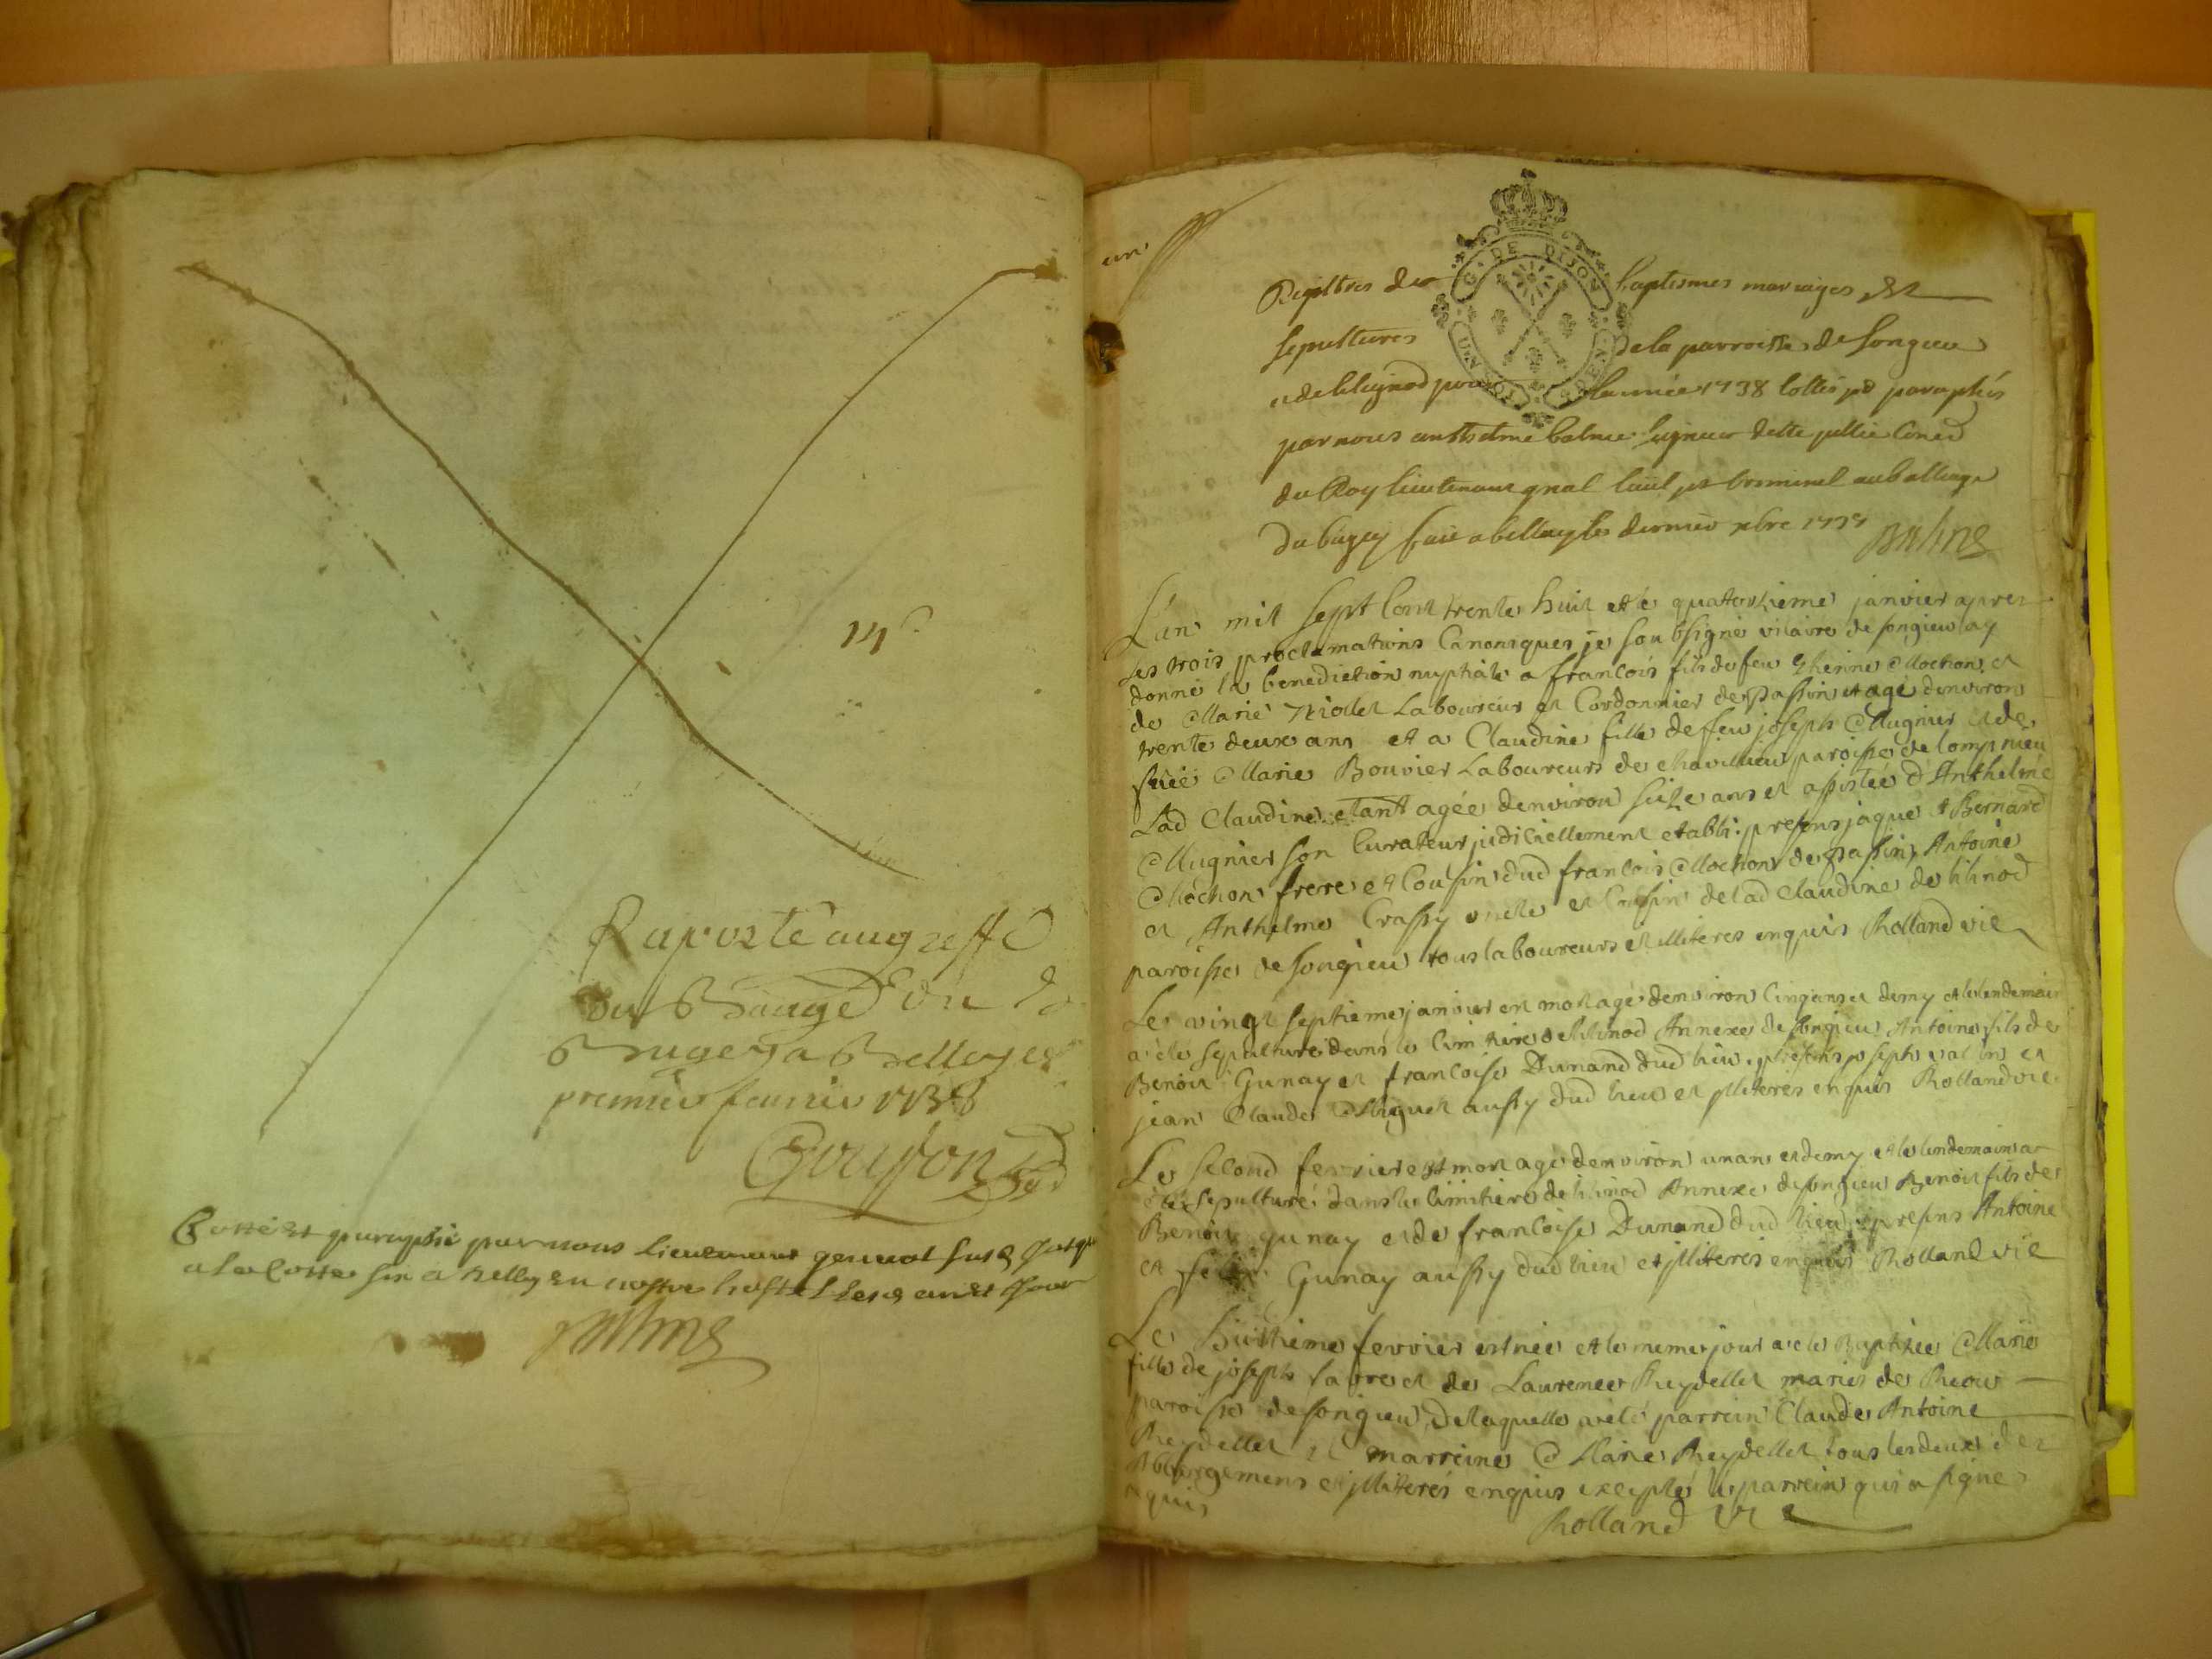 14e
Raporté au greffe
du Baage du
Bugey a Belley le
premier feuvrier 1738
Cotté et paraphé par nous lieutenant general susd jusqu
a la cotte six a Belley en nostre hostel lesd an et jour
Balme
un
G. DE DIJON
Registres des baptesmes mariages et
sepultures de la parroisse de Songieu
pour lannée 1738 cottés et paraphés
par nous anthelme balme
du Roy lieutenant gnal civil et criminel au balliage
du bugey fait a belley le dernier xbre 1737 Balme
L'an mil sept cent trente huit et le quatorzieme janvier apres
les trois proclamations Canoniques je soubsigné vicaire de songieu ay
donné la benediction nuptiale a francois fils de feu Mochon et
de Marie Laboureur et Cordonnier de passin et agé denviron
trente deux ans et a Claudine fille de feu joseph Mugnier et de
Marie Bouvier Laboureurs de chavillieu paroisse de lompnieu
Lad Claudine etant agée denviron seize ans et assistée d'Anthelme
Mugnier son Curateur judiciellement etabli. presens jaque et Bernard
Mochon frere et Cousin dud francois Mochon de passin, Antoine
et Anthelme Crassy oncle et Cousin de lad Claudine de lilinod
paroisse de songieu tous laboureurs et illiteres enquis Rolland vic
Le vingt septieme janvier est mort agé denviron cinq ans et demy et le lendemain
a été sepulturé dans le cimitiere de lilinod Annexe de songieu Antoine fils de
Benoit Gunay et francoise Dunand dud lieu. presens joseph et
jean Claude Miguet aussy dud lieu et illiteres enquis Rolland vic
Le second fevrier est mort agé denviron un ans et demy et le lendemain a
été sepulturé dans le cimitiere de lilinod Annexe de songieu Benoit fils de
Benoit gunay et de francoise Dunand dud lieu presens Antoine
et Gunay aussy dud lieu et illiteres enquis Rolland vic
Le huitieme fevrier est née et le meme jour a été Baptizée Marie
fille de joseph et de Laurence Reydellet mariés de
paroisse de songieu de laquelle a été parrein Claude Antoine
Reydellet et marreine Marie Reydellet tous les deux des
Abbergemens et illiterés enquis excepté le parrein qui a signé
requis
Rolland vic